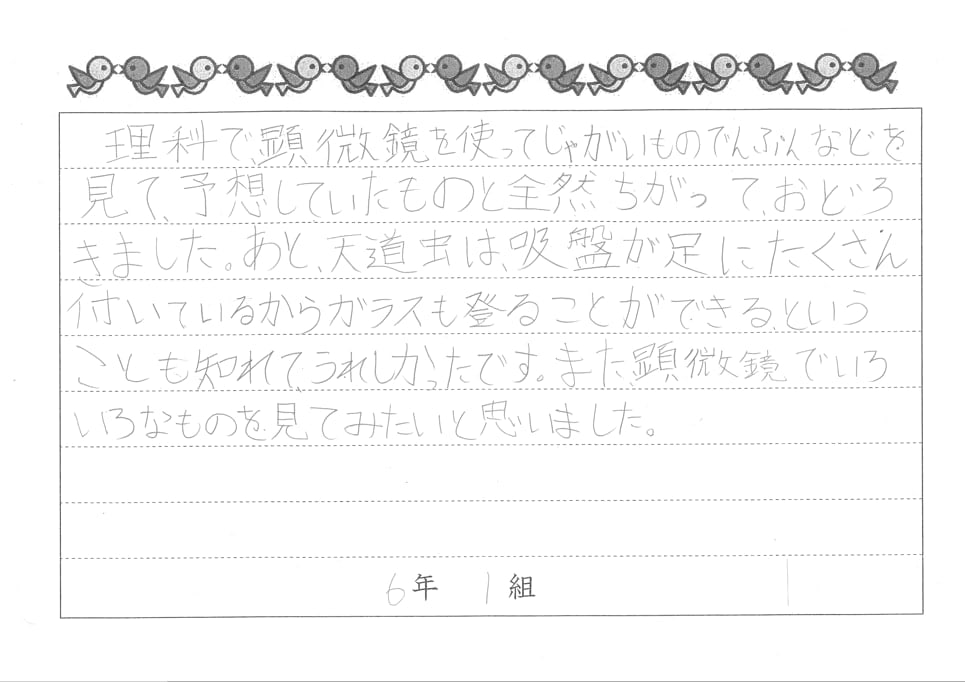 理科で、顕微鏡を使ってじゃがいものでんぷんなどを
見て、予想していたものと全然ちがって、おどろ
きました。あと、天道虫は、吸盤が足にたくさん
付いているからガラスも登ることができる、という
ことも知れて、うれしかったです。また、顕微鏡でいろ
いろなものを見てみたいと思いました。
6年 1組